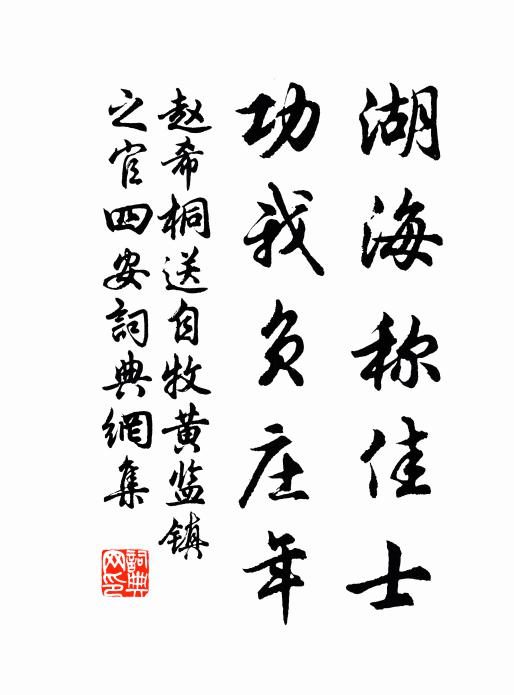 湖海称佳士
功我负庄年
赵希桐送自牧黄监镇
之官四安詞典網集
詞典
网印